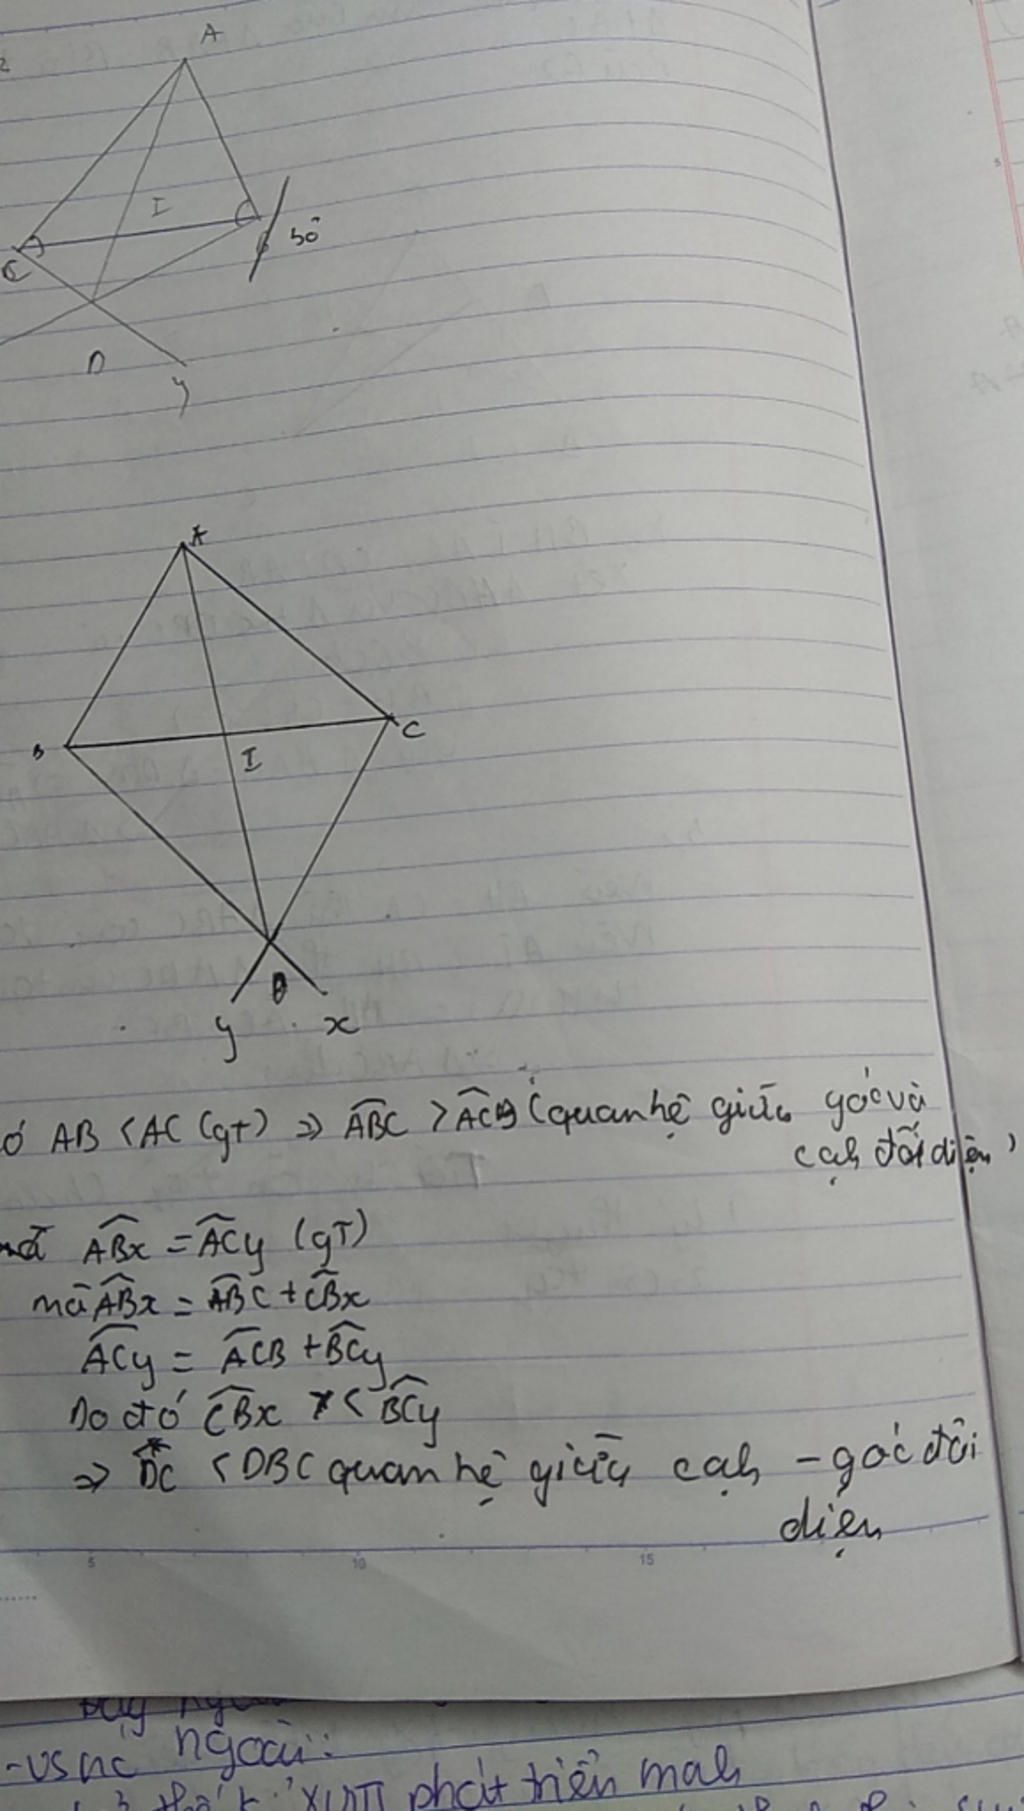 A
I
C
bỏ
D
y
A
B
C
I
D
y x
ó AB < AC (gT) => ABC > ACB (quan hệ giữa góc và
cạh đối diện)
mà ABx = ACy (gT)
mà ABx = ABC + CBx
ACy = ACB + BCy
Do đó CBx < BCy
=> DC < DBC quan hệ giữa cạh - góc đối
diện
5 10 15
ngoài:
phát triển mạh